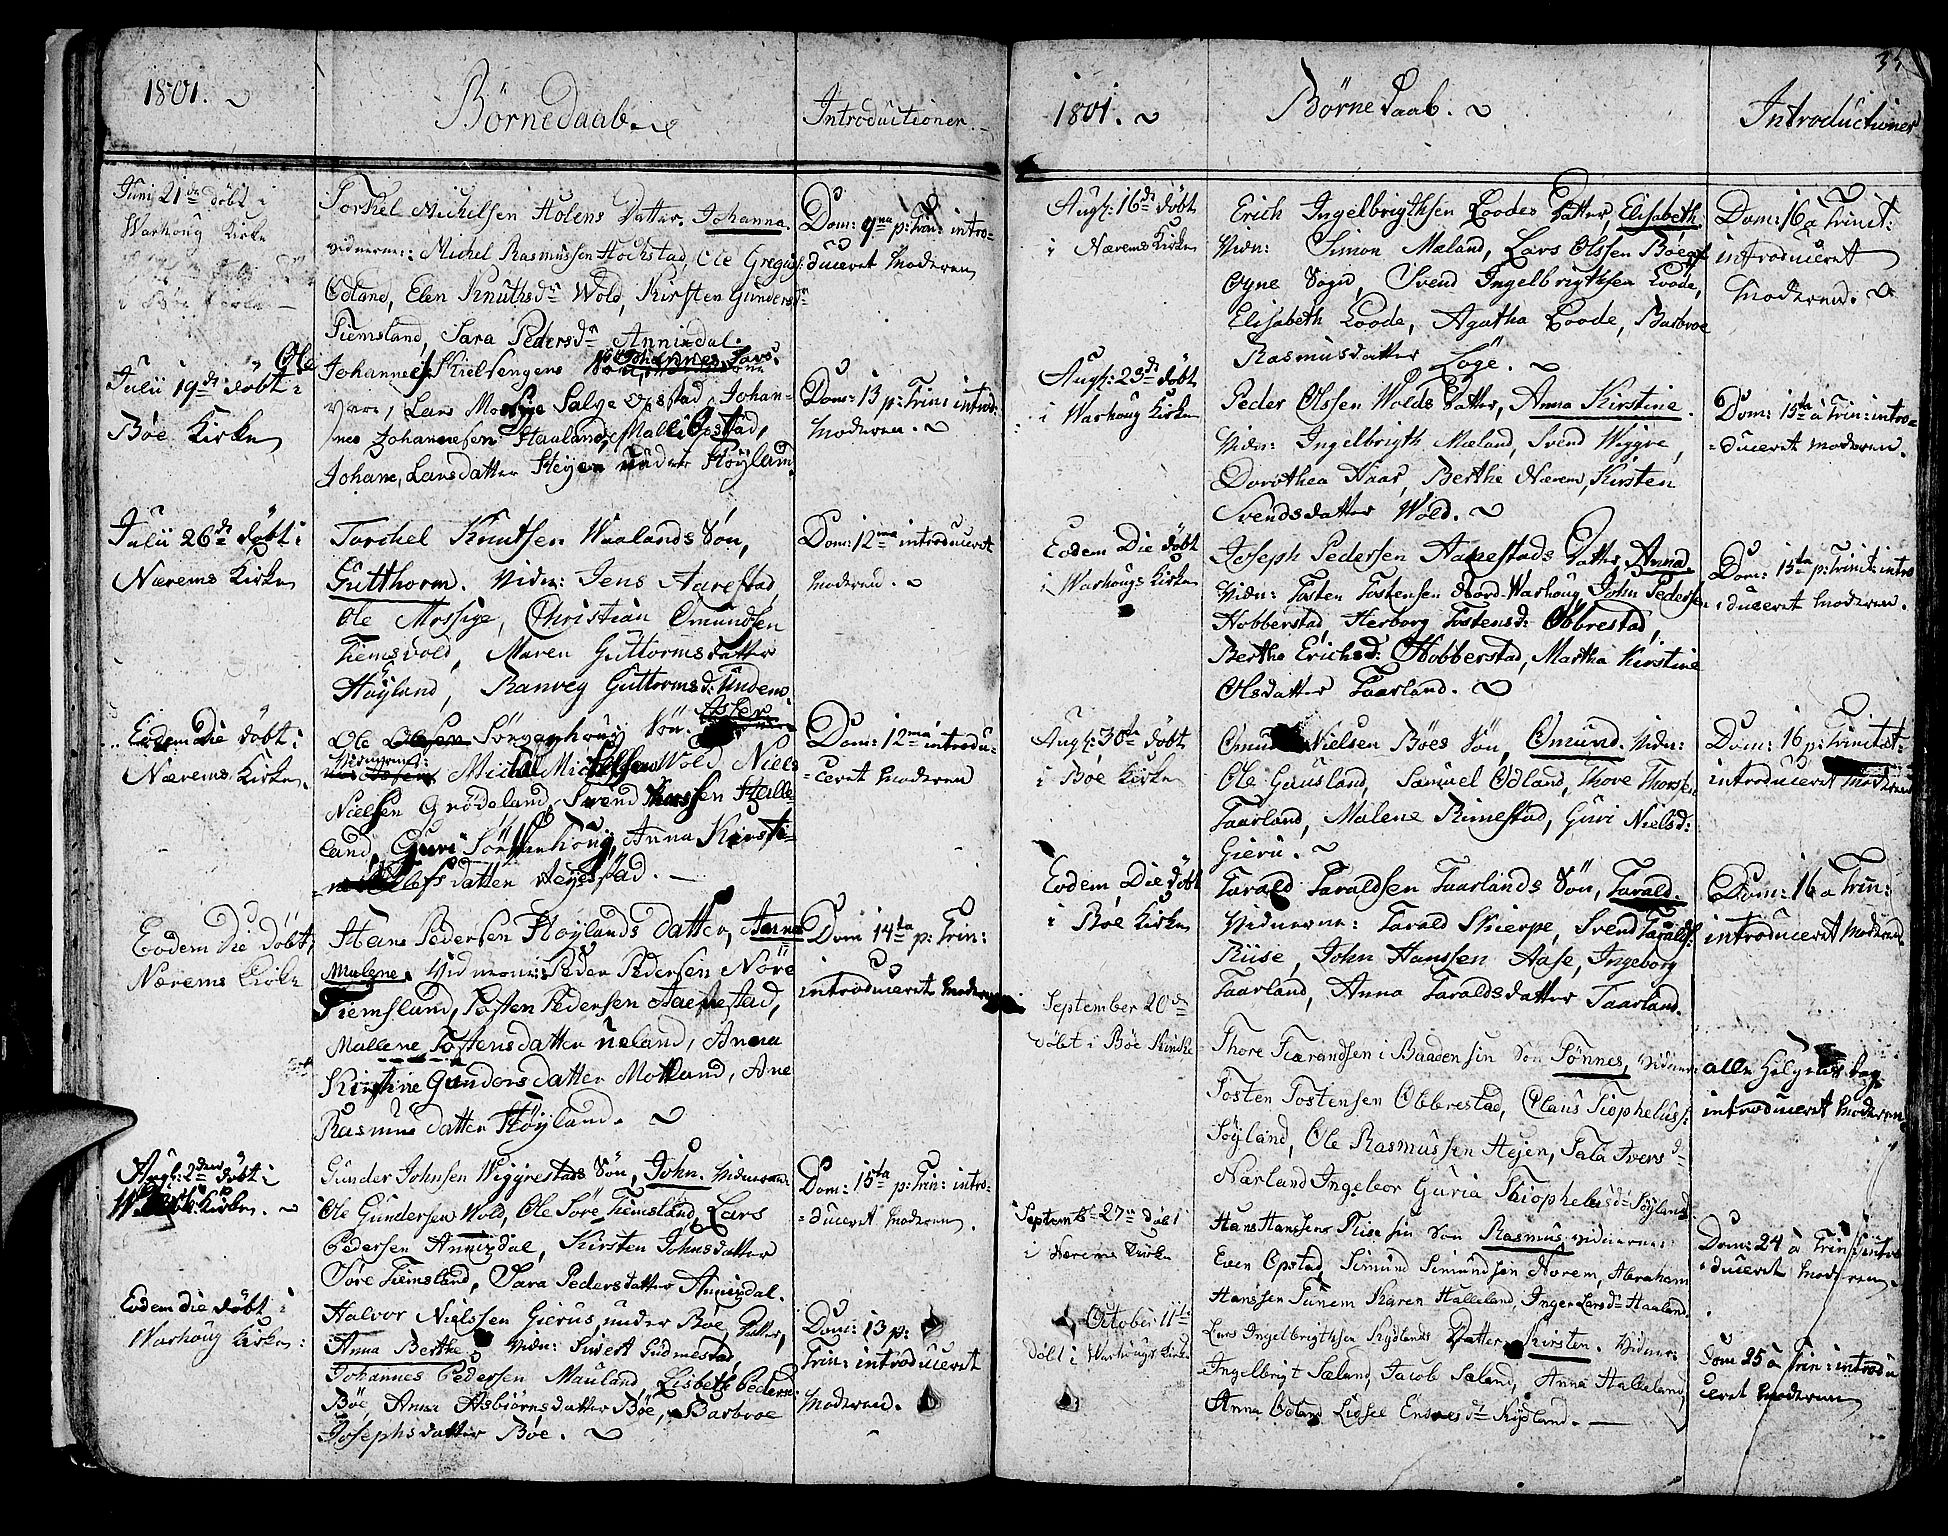 1801.
Børnedaab.
Introductioner.
Junj 21de døbt i
Warhoug Kirke
Torkel Michelsen Holens Datter, Johanna.
vidnerne: Michel Rasmussen Hochstad, Ole Gregiss:
Odland, Elen Knuthsdr Wold, Kirsten Gundersdr
Tiemsland, Sara Pedersdr Annisdal.
Dom: 9na p: Trin: intro-
duceret Moderen
Julii 19de døbt i
Bøe Kirke
Ole
Johannes Kielsengens
Johannes Lars
Lars Mossige Salve Opstad, Johan-
nes Johannesen Haaland, Malli Opstad,
Johane Larsdatter Høyen under Høyland.
Dom: 13 p: Trin: introd.
Moderen.
Julii 26de døbt i
Nærems Kirke
Torchel Knutsen Waalands Søn,
Gutthorm. Vidn: Jens Aarestad,
Ole Mossige, Christian Omundsen
Tiemsvold, Maren Guttormsdatter
Høyland, Ranveg Guttormsd: Undem
Dom: 12ma introduceret
Moderen.
Eodem Die døbt i
Nærems Kirke.
Ole Sørvarhoug Søn
Asser
Vidnerne: Michel Michelsen Wold, Niels
Nielsen Grødeland, Svend Halle-
land, Guri Sørvarhoug, Anna Kirsti-
ne datter
Dom: 12ma introdu-
ceret Moderen
Eodem Die døbt
Nærems Kirke
Hans Pedersen Høylands Datter, Anna
Malene. Vidnerne: Peder Pedersen Nøre
Tiemsland, Tosten Pedersen
Mallene Tostensdatter Ueland, Anna
Kristine Gundersdatter Motland, Ane
Rasmus datter Høyland.
Dom 14ta p: Trin:
introduceret Moderen
Augs: 2den døbt i
Kirke.
Gunder Johnsen Wiggrestads Søn, John. Vidnerne:
Ole Gundersen Wold, Ole Søre Tiemsland, Lars
Pedersen Annisdal, Kirsten Johnsdatter
Søre Tiemsland, Sara Pedersdatter Annisdal.
Dom: 15ta p: Trin: intro-
duceret Moderen.
Eodem die døbt i
Warhoug Kirke:
Halvor Nielssen Gierus under Bøe, Datter,
Anna Berthe. Vidn: Sivert Gudmestad,
Johannes Pedersen Mauland, Lisbeth Peders:
Bøe, Anna Asbiørnsdatter Bøe, Barbroe
Josephsdatter Bøe.
Dom: 13 p:
Trin: introduceret
Moderen.
35
1801.
Børne Daab.
Introductioner
Augs: 16de døbt
i Nærems Kirke
Erich Ingelbrigthsen Loodes Datter, Elisabeth
Vidn: Simon Mæland, Lars Olssen
Oyne Sogn, Svend Ingelbrigthsen Loode,
Elisabeth Loode, Agatha Loode, Barbroe
Rasmusdatter Loge.
Dom: 16 a Trinit:
introduceret
Moderen.
Augs: 23de døbt
i Warhoug Kirke
Peder Olssen Wolds Datter, Anna Kirstine.
Vidn: Ingelbrigth Mæland, Svend Wiggre,
Dorothea Haar, Berthe Nærem, Kirsten
Svendsdatter Wold.
Dom: 15ta a Trin: intro-
duceret Moderen.
Eodem Die døbt
i Warhougs Kirke
Joseph Pedersen Aanestads Datter, Anna.
Vidn: Tosten Tostensen Nord-Warhoug, John Pedersen
Hobberstad, Herborg Tostensd: Obbrestad,
Berthe Erichsd: Hobberstad, Martha Kirstine
Olsdatter Taarland.
Dom: 15ta p: Trinit: intro
duceret Moderen.
Augs: 30te døbt
i Bøe Kirke
Omund Nielsen Bøes Søn, Omund. Vidn:
Ole Gausland, Samuel Odland, Thore Thorsen
Taarland, Malene Rimestad, Guri Nielsd:
Gieru.
Dom: 16 p: Trinitat:
introduceret Moderen
Eodem Die døbt
i Bøe Kirke
Tarald Taraldsen Taarlands Søn, Tarald.
Vidnerne: Tarald Skierpe, Svend Taralds:
Riise, John Hanssen Aase, Ingeborg
Taarland, Anna Taraldsdatter Taarland.
Dom: 16 a Trin:
introduceret Moderen.
September 20de
døbt i Bøe Kircke
Thore Tiærandsen i Baaden sin Søn Tønnes, vidner:
Tosten Tostensen Obbrestad, Claus Tiophelus:
Søyland, Ole Rasmussen Høien, Tala Ivers dr
Narland, Ingebor Guria Thiophelusdr Søyland
alle Helgens dag
introduceret Moderen
Septembr 27de døbt
i Nærems Kirke
Hans Hanssens Riise sin Søn Rasmus, vidnerne:
Even Opstad, Simund Simundsen Norem, Abraham
Hanssen Tunem, Karen Halleland, Inger Larsdr Haaland
Dom: 24 a Trin: intro
duceret Moderen.
October 11te
døbt i Warhougs Kirke
Lars Ingelbrigthsen Rydlands Datter Kirsten. Vidner:
Ingelbrigt Sæland, Jacob Sæland, Anna Halleland,
Anna Odland, Lidsel Rydland.
Dom 25 a Trin: introdu
ceret Moderen